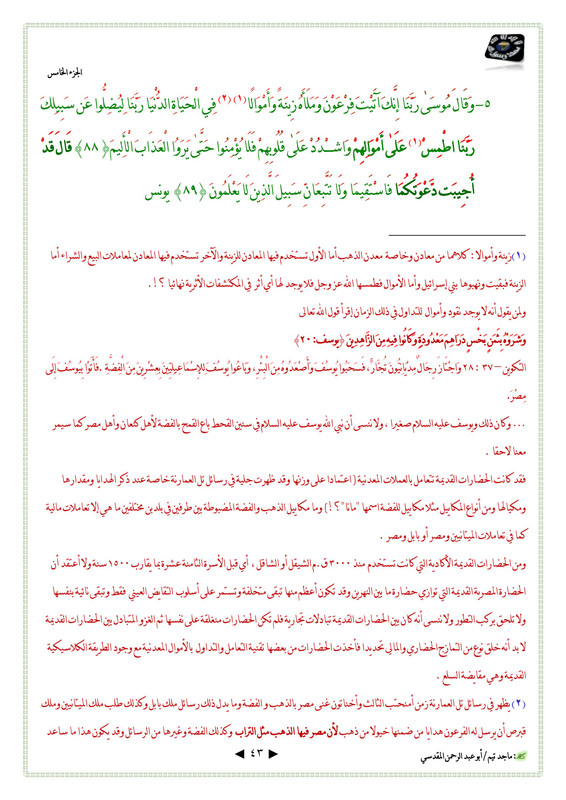 الجزء الخامس
٥-وَقَالَ مُوسَىٰ رَبَّنَا إِنَّكَ آتَيْتَ فِرْعَوْنَ وَمَلَأَهُ زِينَةً وَأَمْوَالًا (١)(٢) فِي الْحَيَاةِ الدُّنْيَا رَبَّنَا لِيُضِلُّوا عَن سَبِيلِكَ
رَبَّنَا اطْمِسْ(١) عَلَىٰ أَمْوَالِهِمْ وَاشْدُدْ عَلَىٰ قُلُوبِهِمْ فَلَا يُؤْمِنُوا حَتَّىٰ يَرَوُا الْعَذَابَ الْأَلِيمَ ﴿٨٨﴾ قَالَ قَدْ
أُجِيبَت دَّعْوَتُكُمَا فَاسْتَقِيمَا وَلَا تَتَّبِعَانِّ سَبِيلَ الَّذِينَ لَا يَعْلَمُونَ ﴿٨٩﴾ يونس
(١) زينة وأموالا : كلاهما من معادن وخاصة معدن الذهب أما الأول تستخدم فيها المعادن للزينة والآخر تستخدم فيها المعادن لمعاملات البيع والشراء أما
الزينة فبقيت ونهبوها بني إسرائيل وأما الأموال فطمسها الله عز وجل فلا يوجد لها أي أثر في المكتشفات الأثرية نهائيا ؟ ! .
ولمن يقول أنه لا يوجد نقود وأموال للتداول في ذلك الزمان إقرأ قول الله تعالى
وَشَرَوْهُ بِثَمَنٍ بَخْسٍ دَرَاهِمَ مَعْدُودَةٍ وَكَانُوا فِيهِ مِنَ الزَّاهِدِينَ ﴿يوسف: ٢٠﴾
التكوين – ٣٧ : ٢٨ وَاجْتَازَ رِجَالٌ مِدْيَانِيُّونَ تُجَّارٌ، فَسَحَبُوا يُوسُفَ وَأَصْعَدُوهُ مِنَ الْبِئْرِ، وَبَاعُوا يُوسُفَ لِلإِسْمَاعِيلِيِّينَ بِعِشْرِينَ مِنَ الْفِضَّةِ . فَأَتَوْا بِيُوسُفَ إِلَى
مِصْرَ.
... وكان ذلك ويوسف عليه السلام صغيرا ، ولا ننسى أن نبي الله يوسف عليه السلام في سنين القحط باع القمح بالفضة لأهل كنعان وأهل مصر كما سيمر
معنا لاحقا .
فقد كانت الحضارات القديمة تتعامل بالعملات المعدنية ( اعتمادا على وزنها وقد ظهرت جلية في رسائل تل العمارنة خاصة عند ذكر الهدايا ومقدارها
ومكيالها ومن أنواع المكاييل مثلا مكاييل للفضة اسمها "مانا" ؟ ! ) وما مكاييل الذهب والفضة المضبوطة بين طرفين في بلدين مختلفين ما هي إلا تعاملات مالية
كما في تعاملات الميتانيين ومصر أو بابل ومصر .
ومن الحضارات القديمة الأكادية التي كانت تستخدم منذ ٣٠٠٠ ق.م الشيقل أو الشاقل ، أي قبل الأسرة الثامنة عشرة بما يقارب ١٥٠٠ سنة ولا أعتقد أن
الحضارة المصرية القديمة التي توازي حضارة ما بين النهرين وقد تكون أعظم منها تبقى متخلفة وتستمر على أسلوب التقايض العيني فقط وتبقى نائية بنفسها
ولا تلحق بركب التطور ولا ننسى أنه كان بين الحضارات القديمة تبادلات تجارية فلم تكن الحضارات منغلقة على نفسها ثم الغزو المتبادل بين الحضارات القديمة
لا بد أنه خلق نوع من التمازج الحضاري والمالي تحديدا فأخذت الحضارات من بعضها تقنية التعامل والتداول بالأموال المعدنية مع وجود الطريقة الكلاسيكية
القديمة وهي مقايضة السلع .
(٢) يظهر في رسائل تل العمارنة زمن أمنحتب الثالث وأخناتون غنى مصر بالذهب والفضة وما يدل ذلك رسائل ملك بابل وكذلك طلب ملك الميتانيين وملك
قبرص أن يرسل له الفرعون هدايا من ضمنها خيولا من ذهب لأن مصر فيها الذهب مثل التراب وكذلك الفضة وغيرها من الرسائل وقد يكون هذا ما ساعد
: ماجد تيم / أبو عبد الرحمن المقدسي
٤٣